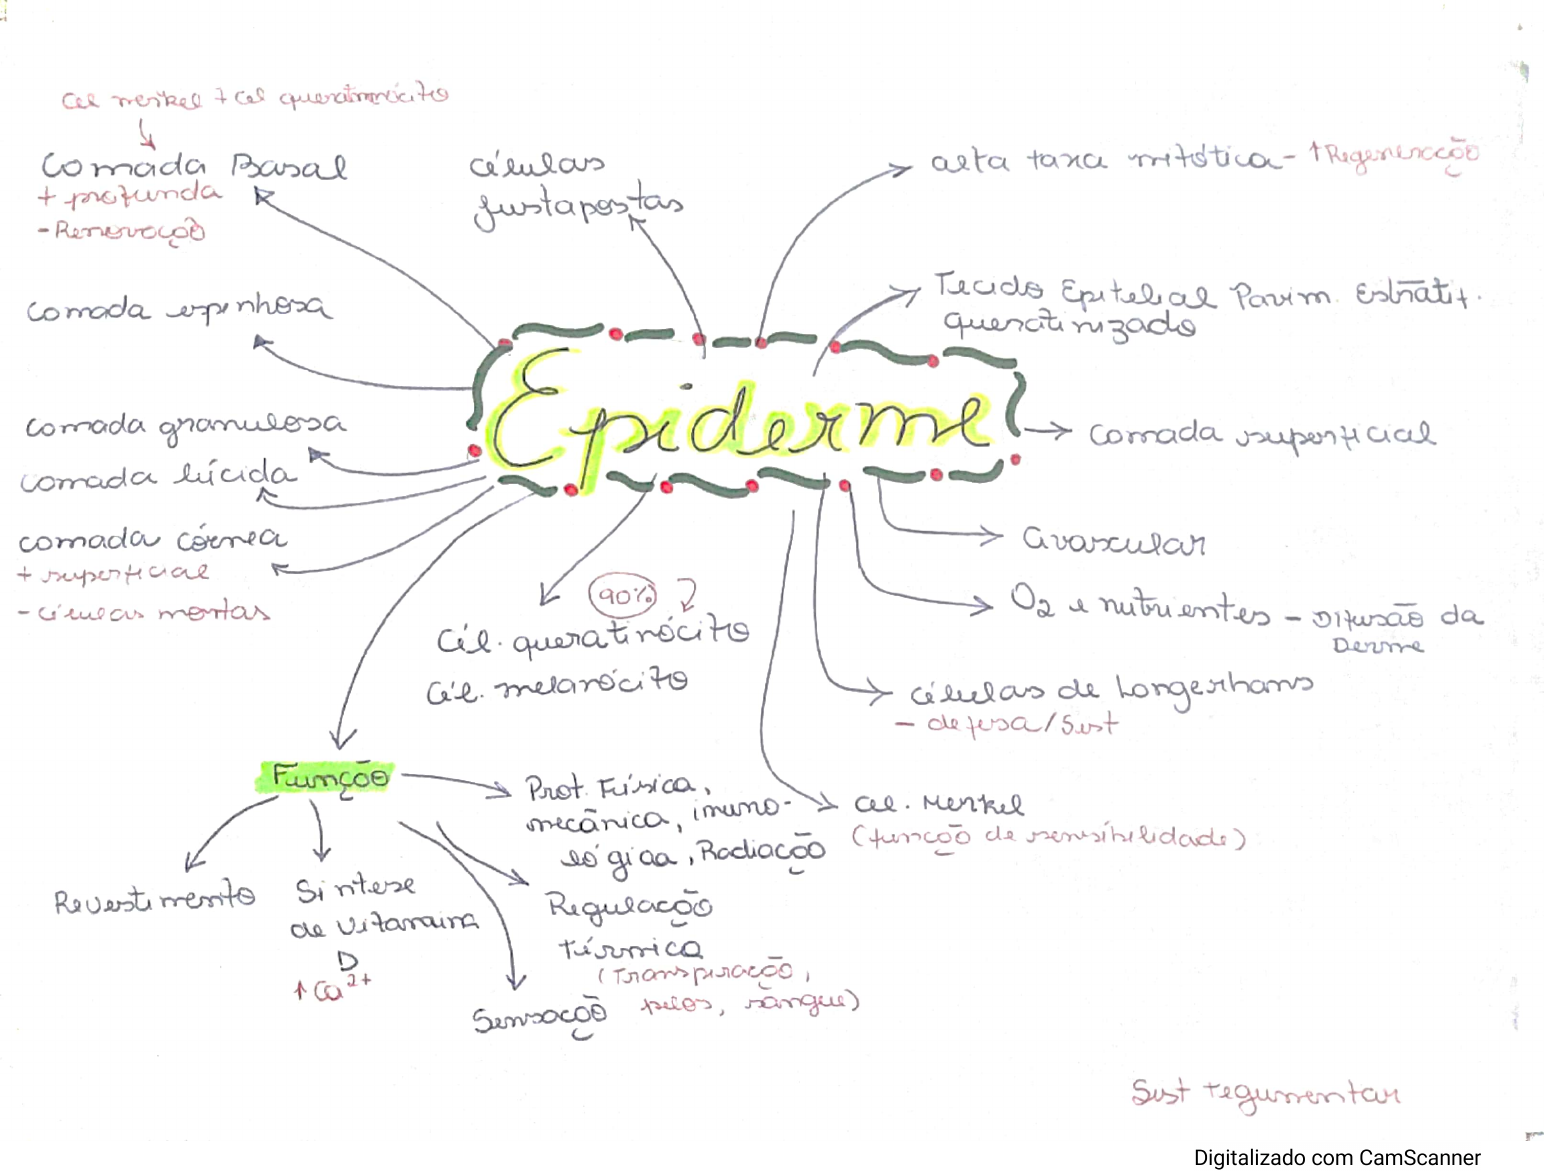 Cel merkel + cel queratinócito
Camada Basal
+ profunda
- Renovação
Camada espinhosa
Camada granulosa
Camada lúcida
Camada córnea
+ superficial
- células mortas
células
justapostas
alta taxa mitótica - ↑ Regeneração
Tecido Epitelial Pavim. Estratif.
queratinizado
Epiderme
Camada superficial
avascular
O2 e nutrientes - Difusão da
Derme
células de Langerhans
- defesa/Sist
cel. Merkel
(função de sensibilidade)
90%
Cél. queratinócito
Cél. melanócito
Função
Revestimento
Síntese
de Vitamina
D
↑ Ca2+
Prot. Física,
mecânica, imuno-
lógica, Radiação
Regulação
térmica
(Transpiração,
pelos, sangue)
Sensação
Sist tegumentar
Digitalizado com CamScanner